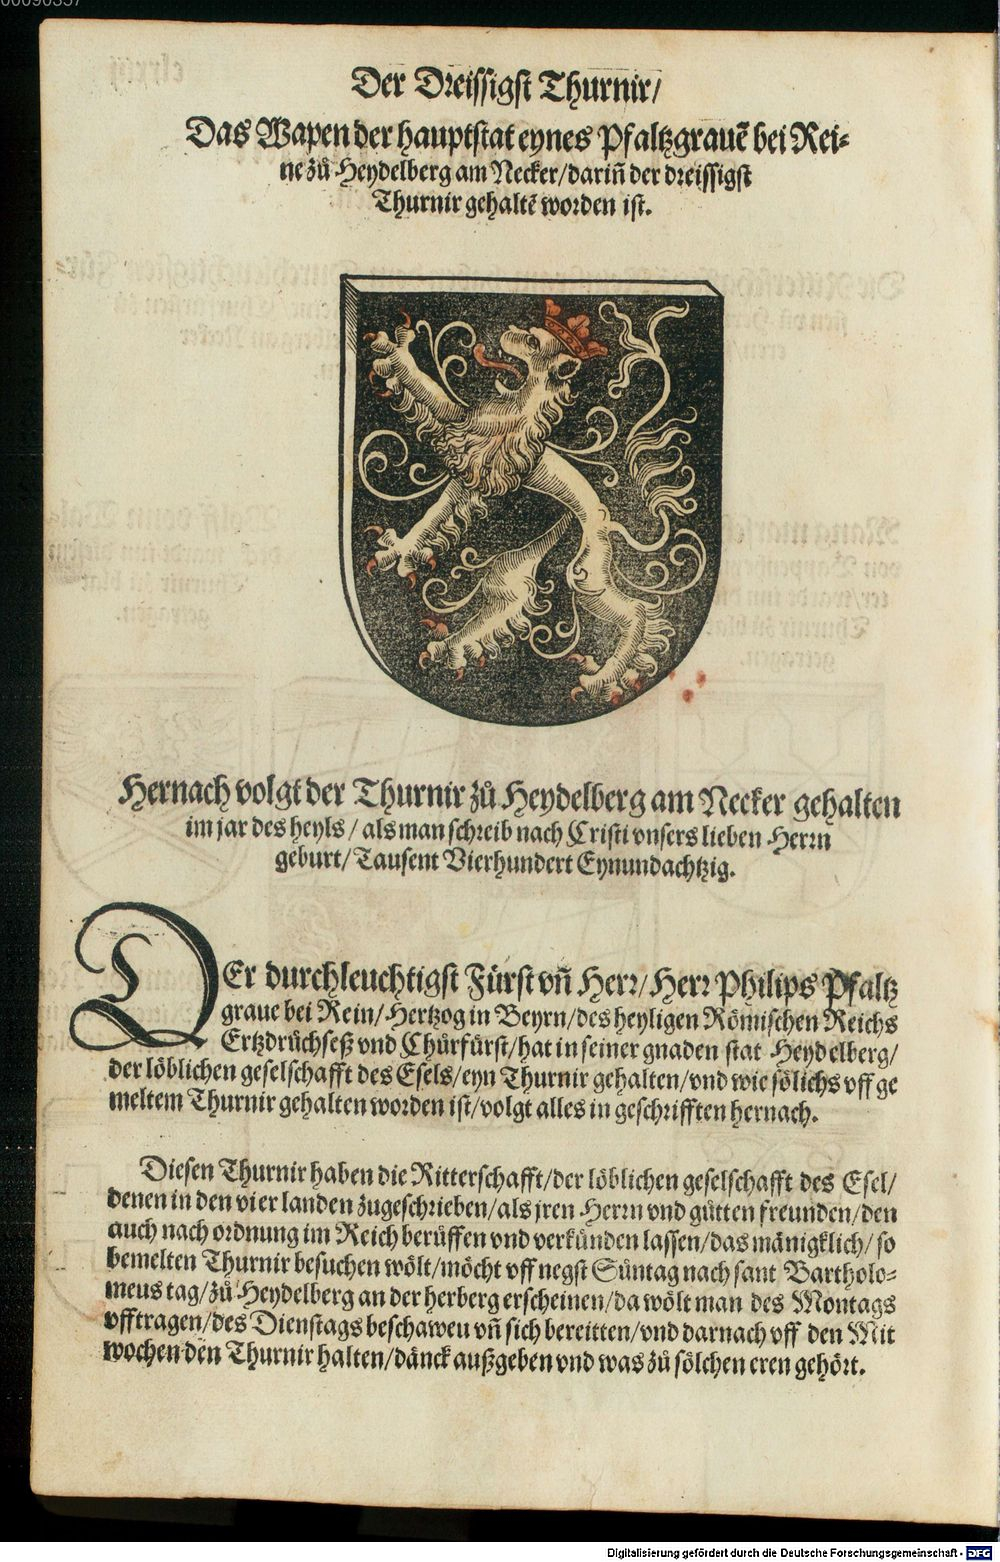 00090357
Der Dreissigst Thurnir/
Das Wapen der hauptstat eynes Pfaltzgrauẽ bei Rei-
ne zů Heydelberg am Necker/dariñ der dreissigst
Thurnir gehaltẽ worden ist.
Hernach volgt der Thurnir zů Heydelberg am Necker gehalten
im jar des heyls/als man schreib nach Cristi vnsers lieben Herrn
geburt/Tausent Vierhundert Eynundachtzig.
DEr durchleuchtigst Fürst vñ Herr/Herr Philips Pfaltz
graue bei Rein/Hertzog in Beyrn/des heyligen Römischen Reichs
Ertzdrüchseß vnd Chůrfürst/hat in seiner gnaden stat Heydelberg/
der löblichen geselschafft des Esels/eyn Thurnir gehalten/vnd wie sölichs vff ge
meltem Thurnir gehalten worden ist/volgt alles in geschrifften hernach.
Diesen Thurnir haben die Ritterschafft/der löblichen geselschafft des Esel/
denen in den vier landen zugeschrieben/als jren Herrn vnd gůtten freunden/den
auch nach ordnung im Reich berůffen vnd verkünden lassen/das mänigklich/so
bemelten Thurnir besuchen wölt/möcht vff negst Suntag nach sant Bartholo-
meus tag/zů Heydelberg an der herberg erscheinen/da wölt man des Montags
vfftragen/des Dienstags beschawen vñ sich bereitten/vnd darnach vff den Mit
wochen den Thurnir halten/dänck außgeben vnd was zů sölchen eren gehört.
Digitalisierung gefördert durch die Deutsche Forschungsgemeinschaft - DFG